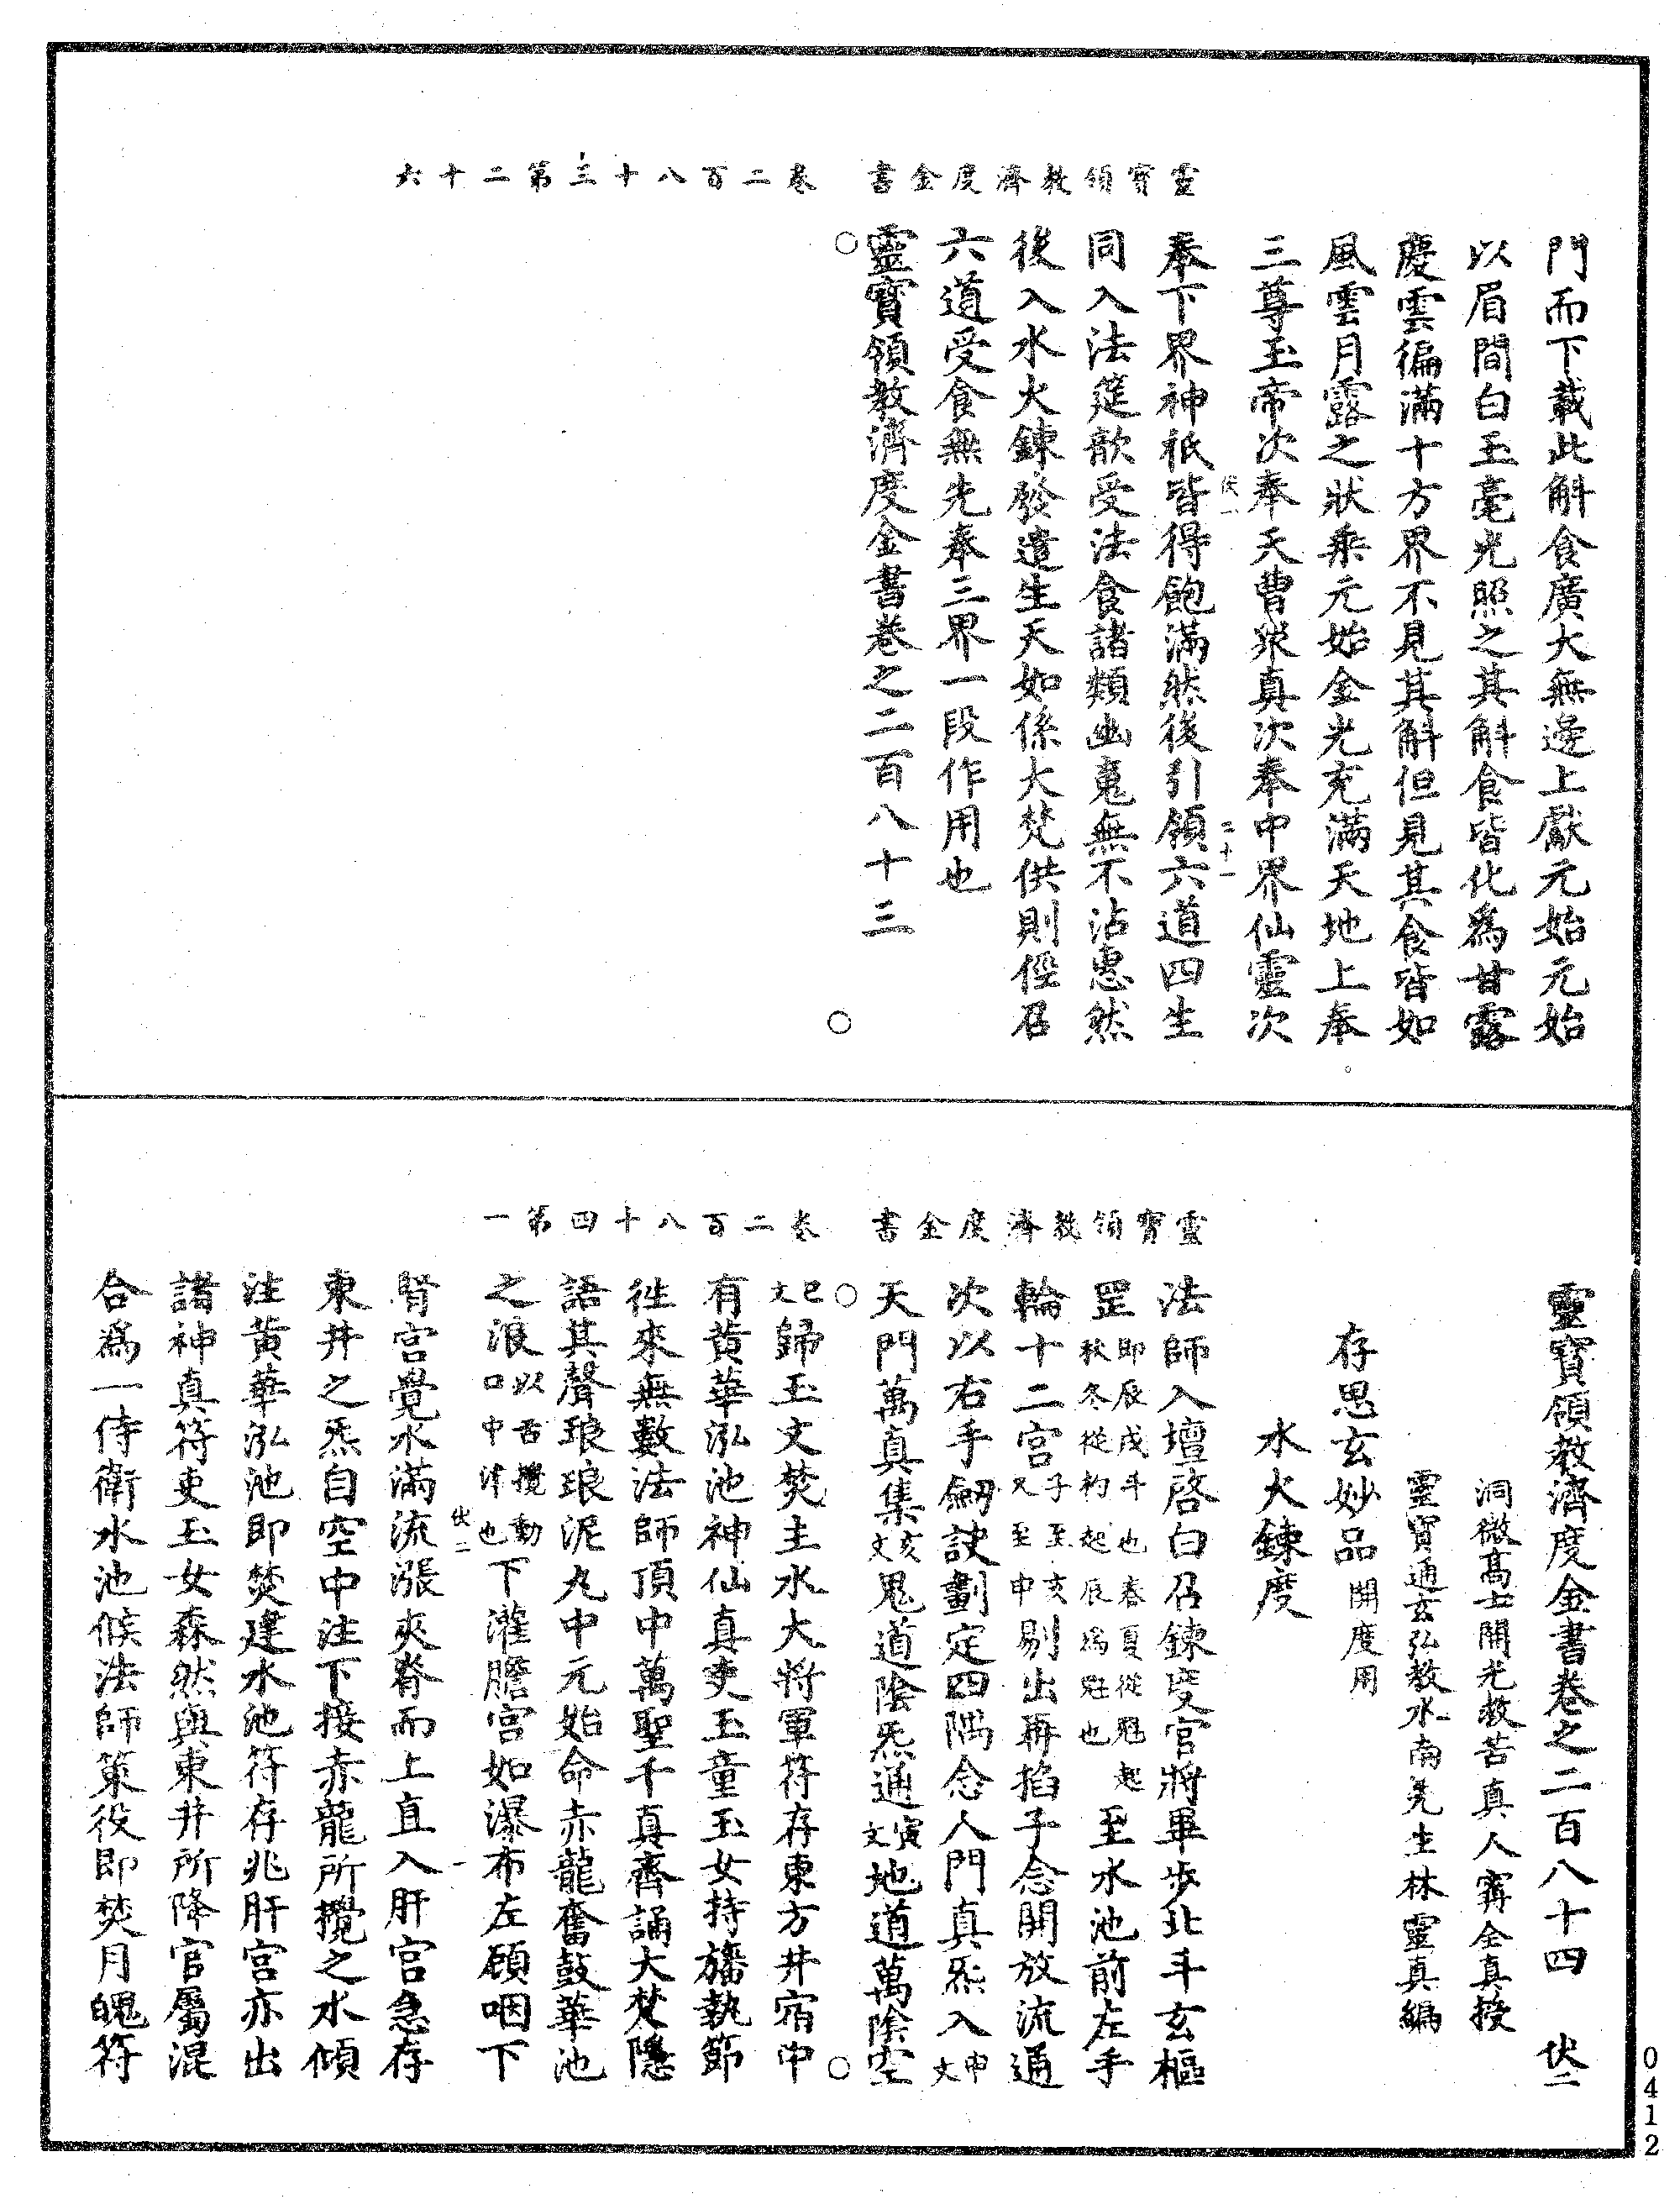 靈寶領教濟度金書　卷二百八十三第二十六
門而下載此斛食廣大無邊上獻元始元始
以眉間白玉毫光照之其斛食皆化為甘露
慶雲徧滿十方界不見其斛但見其食皆如
風雲月露之狀乘元始金光充滿天地上奉
三尊玉帝次奉天曹衆真次奉中界仙靈次
伏一　二十一
奉下界神祇皆得飽滿然後引領六道四生
同入法筵歆受法食諸類幽䰟無不沾惠然
後入水火鍊發遣生天如係大梵供則徑召
六道受食無先奉三界一段作用也
靈寶領教濟度金書卷之二百八十三
靈寶領教濟度金書卷之二百八十四　伏二
洞微高士開光救苦真人甯全真授
靈寶通玄弘教水南先生林靈真編
存思玄妙品開度用
水火鍊度
靈寶領教濟度金書　卷二百八十四第一
法師入壇啓白召鍊度官將畢步北斗玄樞
罡即辰戌斗也春夏從魁起秋冬從杓起辰為魁也至水池前左手
輪十二宮子至亥又至申剔出再掐子念開放流通
次以右手劒訣劃定四隅念人門真炁入申文
天門萬真集亥文鬼道陰炁通寅文地道萬陰空
巳文歸玉文焚主水大將軍符存東方井宿中
有黃華泓池神仙真吏玉童玉女持旛執節
徃來無數法師頂中萬聖千真齊誦大梵隱
語其聲琅琅泥丸中元始命赤龍奮鼓華池
之浪以舌攪動口中津也下灌膽宮如瀑布左顧咽下
伏二　一
腎宮覺水滿流漲夾脊而上直入肝宮急存
東井之炁自空中注下接赤龍所攪之水傾
注黃華泓池即焚建水池符存兆肝宮亦出
諸神真符吏玉女森然與東井所降官屬混
合為一侍衛水池候法師策役即焚月魄符
0412